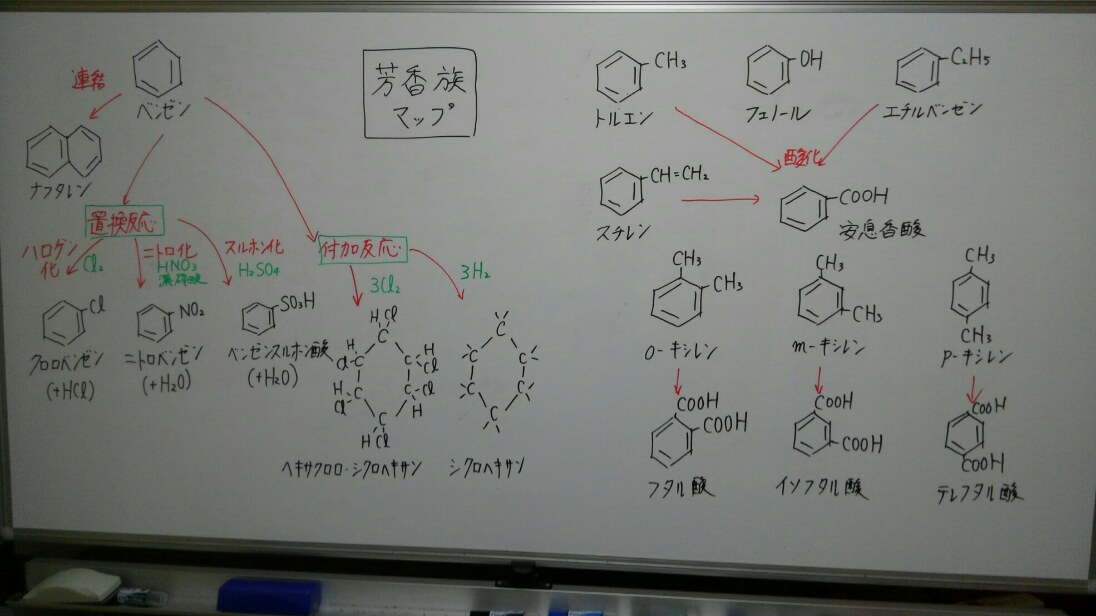 芳香族
マップ
連結
ベンゼン
ナフタレン
置換反応
ハロゲン
化
Cl₂
ニトロ化
HNO₃
濃硫酸
スルホン化
H₂SO₄
付加反応
3Cl₂
3H₂
Cl
クロロベンゼン
(+HCl)
NO₂
ニトロベンゼン
(+H₂O)
SO₃H
ベンゼンスルホン酸
(+H₂O)
H Cl
C
H
Cl C
C H
Cl
H
Cl C
C Cl
H
C
H Cl
ヘキサクロロ・シクロヘキサン
C
C C
C C
C
シクロヘキサン
CH₃
トルエン
OH
フェノール
C₂H₅
エチルベンゼン
酸化
CH=CH₂
スチレン
COOH
安息香酸
CH₃
CH₃
o-キシレン
CH₃
CH₃
m-キシレン
CH₃
CH₃
p-キシレン
COOH
COOH
フタル酸
COOH
COOH
イソフタル酸
COOH
COOH
テレフタル酸